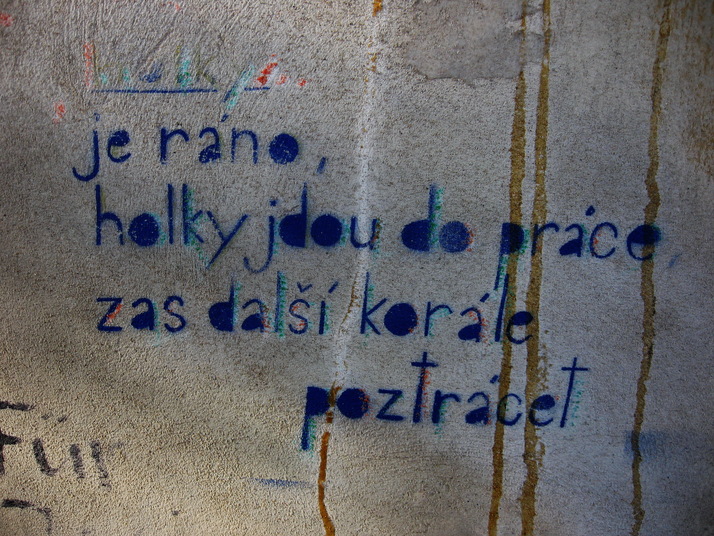 je ráno,
holky jdou do práce,
zas další korále
poztrácet
für